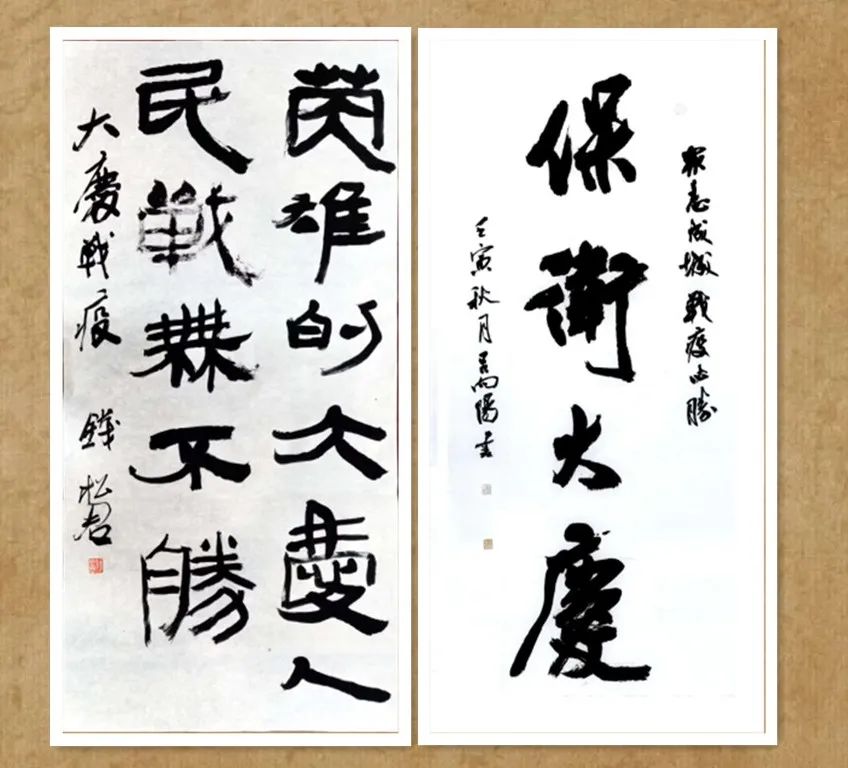 英雄的大慶人
民戰無不勝
大慶戰疫 錢松君
眾志成城 戰疫必勝
保衛大慶
壬寅秋月 吕向陽書